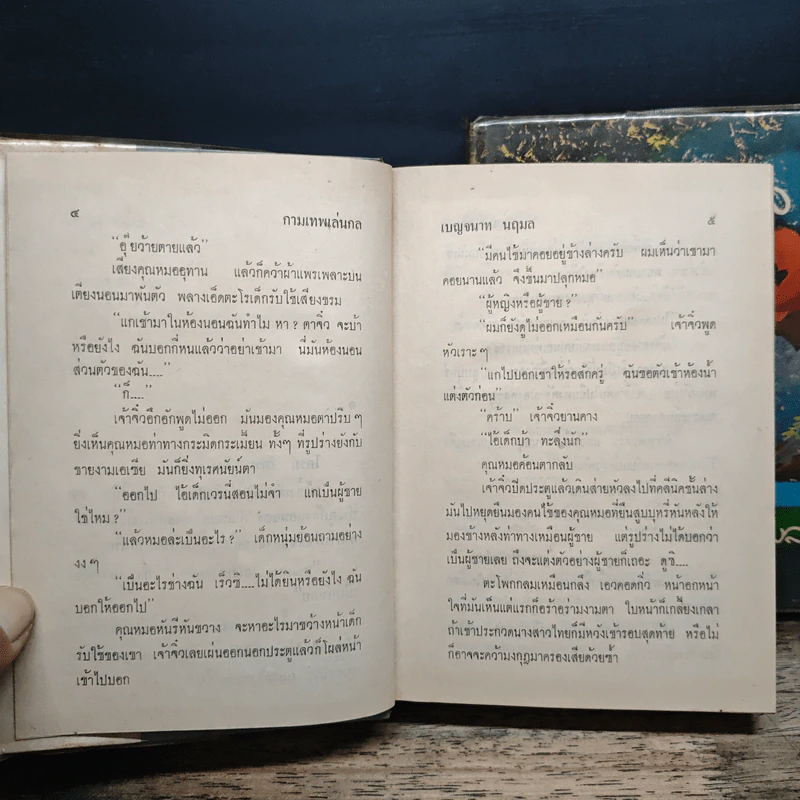 ๔ กามเทพเล่นกล
“อุ๊ยว้ายตายแล้ว”
เสียงคุณหมออุทาน แล้วก็คว้าผ้าแพรเพลาะบน
เตียงนอนมาพันตัว พลางเอ็ดตะโรเด็กรับใช้เสียงขรม
“แกเข้ามาในห้องนอนฉันทำไม หา? ตาจิ๋ว จะบ้า
หรือยังไง ฉันบอกกี่หนแล้วว่าอย่าเข้ามา นี่มันห้องนอน
ส่วนตัวของฉัน....”
“ก็....”
เจ้าจิ๋วอึกอักพูดไม่ออก มันมองคุณหมอตาปริบๆ
ยิ่งเห็นคุณหมอทำท่าทางกระมิดกระเมี้ยน ทั้งๆ ที่รูปร่างยังกับ
ชายงามเอเซีย มันก็ยิ่งทุเรศนัยน์ตา
“ออกไป ไอ้เด็กเวรนี่สอนไม่จำ แกเป็นผู้ชาย
ใช่ไหม?”
“แล้วหมอล่ะเป็นอะไร?” เด็กหนุ่มย้อนถามอย่าง
งงๆ
“เป็นอะไรช่างฉัน เร็วซิ....ไม่ได้ยินหรือยังไง ฉัน
บอกให้ออกไป”
คุณหมอหันรีหันขวาง จะหาอะไรมาขว้างหน้าเด็ก
รับใช้ของเขา เจ้าจิ๋วเลยเผ่นออกนอกประตูแล้วก็โผล่หน้า
เข้าไปบอก
เบญจนาท นฤมล ๕
“มีคนไข้มาคอยอยู่ข้างล่างครับ ผมเห็นว่าเขามา
คอยนานแล้ว จึงขึ้นมาปลุกหมอ”
“ผู้หญิงหรือผู้ชาย?”
“ผมก็ยังดูไม่ออกเหมือนกันครับ” เจ้าจิ๋วพูด
หัวเราะๆ
“แกไปบอกเขาให้รอสักครู่ ฉันขอตัวเข้าห้องน้ำ
แต่งตัวก่อน”
“คร้าบ” เจ้าจิ๋วยานคาง
“ไอ้เด็กบ้า ทะลึ่งนัก”
คุณหมอค้อนตากลับ
เจ้าจิ๋วปิดประตูแล้วเดินส่ายหัวลงไปที่คลีนิคชั้นล่าง
มันไปหยุดยืนมองคนไข้ของคุณหมอที่ยืนสูบบุหรี่หันหลังให้
มองข้างหลังท่าทางเหมือนผู้ชาย แต่รูปร่างไม่ได้บอกว่า
เป็นผู้ชายเลย ถึงจะแต่งตัวอย่างผู้ชายก็เถอะ ดูซิ....
ตะโพกกลมเหมือนกลึง เอวคอดกิ่ว หน้าอกหน้า
ใจที่มันเห็นแต่แรกก็อร้าอร่ามงามตา ใบหน้าก็เกลี้ยงเกลา
ถ้าเข้าประกวดนางสาวไทยก็มีหวังเข้ารอบสุดท้าย หรือไม่
ก็อาจจะคว้ามงกุฎมาครองเสียด้วยซ้ำ